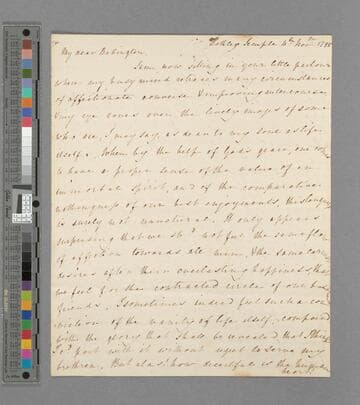 Rothley Temple 4th Novr. 1795
My dear Babington
I am now sitting in your little parlour
where my busy mind retraces many circumstances
of affectionate converse & improving intercourse,
& my eye roves over the lively images of some
who are, I may say, as dear to my soul as life
itself. When by the help of God's grace, one
to have a proper sense of the value of an
immortal Spirit, and of the comparative
nothingness of our best enjoyments, the
is surely not unnatural. It only appears
surprising that we shd. not feel the same flow
of affection towards all men, & the same
desires after their everlasting happiness that
we feel for the contracted circle of our
friends. I sometimes indeed feel such a con
viction of the vanity of life itself, compared
with the glory that shall be revealed that I think
I cd. part with it without regret to serve my
brethren. But alas! how deceitful is the
heart